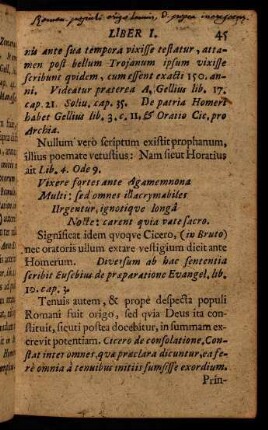 LIBER I. 45
ris ante sua tempora vixisse testatur, atta-
men post bellum Trojanum ipsum vixisse
scribunt quidem, cum essent exacti 150. an-
ni. Videatur præterea A, Gellius lib. 17.
cap. 21. Solin. cap. 35. De patria Homeri
habet Gellius lib. 3. c. 11, & Oratio Cic, pro
Archia.
Nullum vero scriptum existit prophanum,
illius poemate vetustius: Nam sicut Horatius
ait Lib. 4. Ode 9.
Vixere fortes ante Agamemnona
Multi: sed omnes illacrymabiles
Urgentur, ignotique longâ
Nocte: carent quia vate sacro.
Significat idem qvoqve Cicero, (in Bruto)
nec oratoris ullum extare vestigium dicit ante
Homerum. Diversum ab hac sententia
scribit Eusebius de præparatione Evangel. lib.
10. cap. 3.
Tenuis autem, & prope despecta populi
Romani fuit origo, sed qvia Deus ita con-
stituit, sicuti postea docebitur, in summam ex-
crevit potentiam. Cicero de consolatione, Con-
stat inter omnes, quæ præclara dicuntur, ea fe-
rè omnia à tenuibus initiis sumsisse exordium.
Prin-